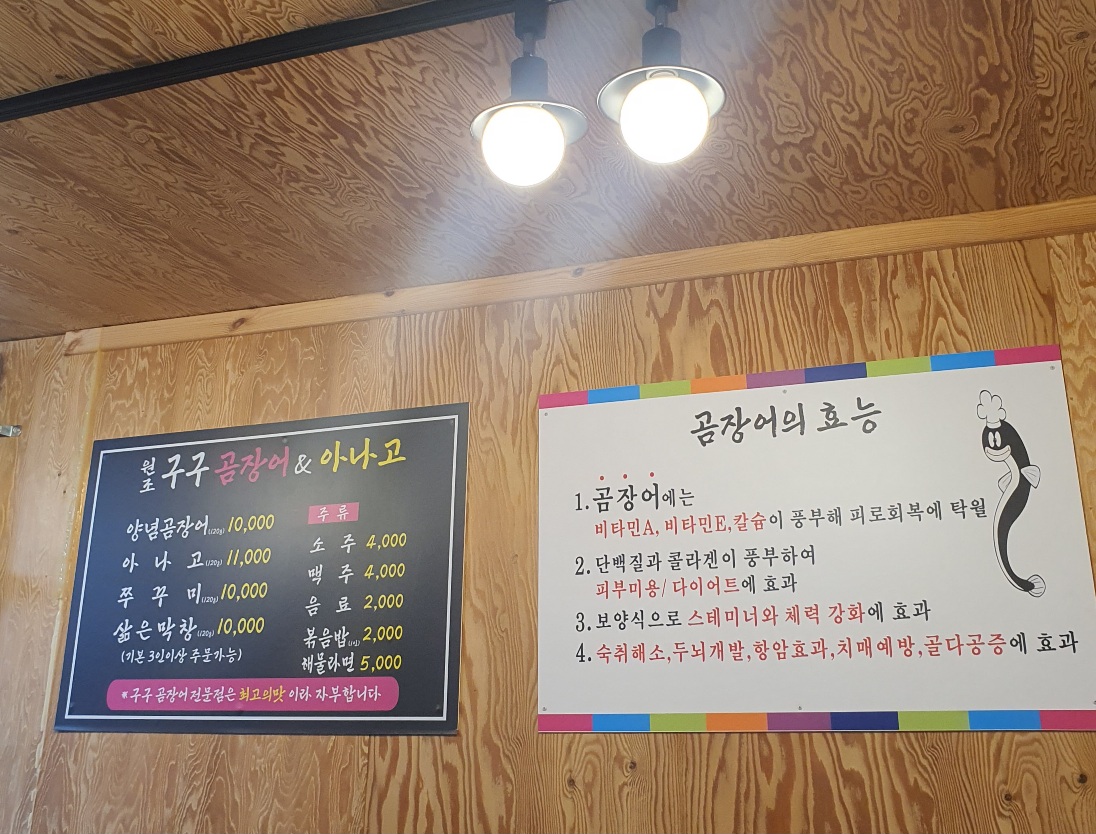 원조 구구 곰장어 & 아나고
양념곰장어(120g) 10,000
아나고(120g) 11,000
쭈꾸미(120g) 10,000
삶은막창(120g) 10,000
(기본 3인이상 주문가능)
주류
소주 4,000
맥주 4,000
음료 2,000
볶음밥(1인) 2,000
해물라면 5,000
※ 구구 곰장어 전문점은 최고의맛 이라 자부합니다
곰장어의 효능
1. 곰장어에는
비타민A, 비타민E, 칼슘이 풍부해 피로회복에 탁월
2. 단백질과 콜라겐이 풍부하여
피부미용/ 다이어트에 효과
3. 보양식으로 스테미너와 체력 강화에 효과
4. 숙취해소,두뇌개발,항암효과,치매예방,골다공증에 효과